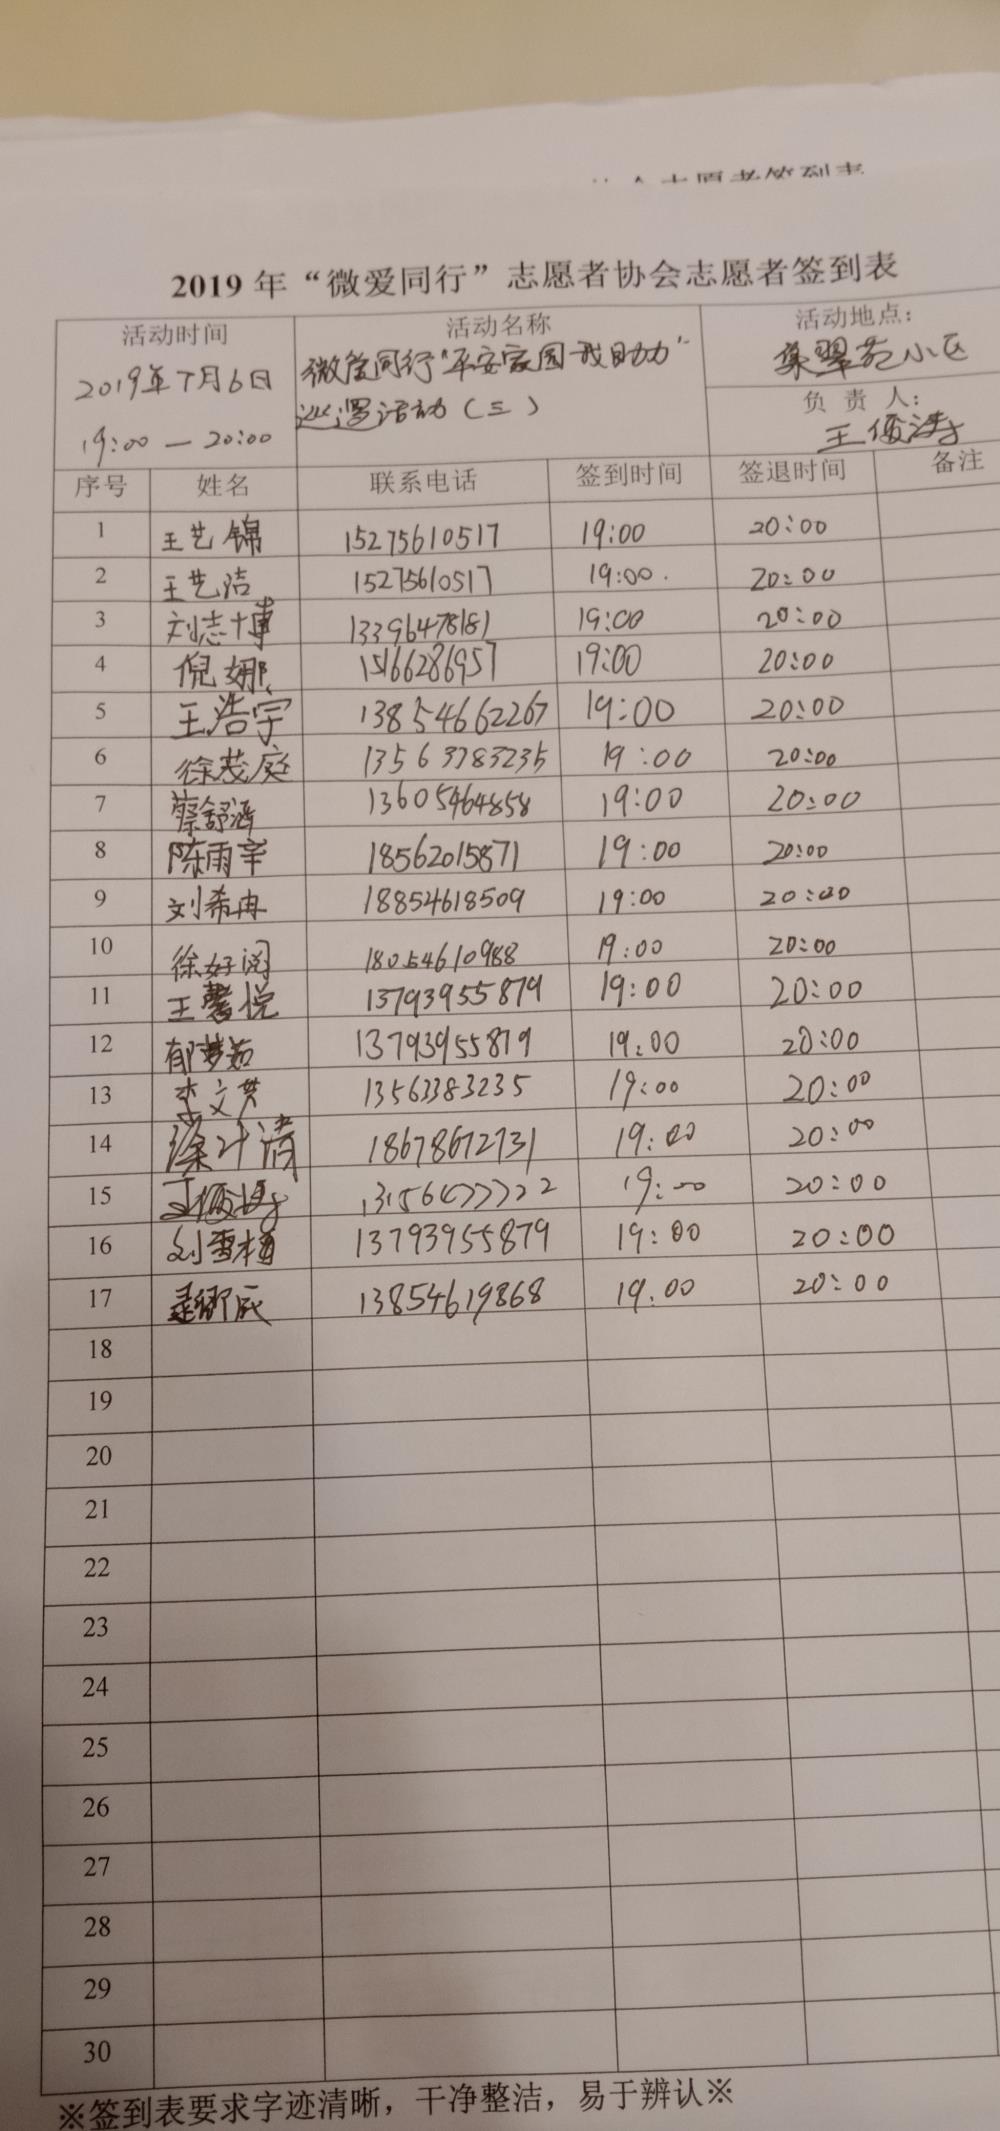 志愿者签到表
2019 年“微爱同行”志愿者协会志愿者签到表
活动时间 活动名称 活动地点：
2019年7月6日 微爱同行“平安家园我助力” 集翠苑小区
19:00 — 20:00 巡逻活动（三） 负 责 人：
王俊涛
序号 姓名 联系电话 签到时间 签退时间 备注
1 王艺锦 15275610517 19:00 20:00
2 王艺洁 15275610517 19:00. 20:00
3 刘志博 13396478181 19:00 20:00
4 倪娜 15166286957 19:00 20:00
5 王浩宇 13854662267 19:00 20:00
6 徐茂庭 13563783235 19:00 20:00
7 蔡舒涵 13605464858 19:00 20:00
8 陈雨辛 18562015871 19:00 20:00
9 刘希冉 18854618509 19:00 20:00
10 徐好阅 18054610988 19:00 20:00
11 王馨悦 13793955879 19:00 20:00
12 郁梦茹 13793955879 19:00 20:00
13 李文芳 13563383235 19:00 20:00
14 徐叶清 18678672731 19:00 20:00
15 19:00 20:00
16 刘雪梅 13793955879 19:00 20:00
17 13854619868 19:00 20:00
18
19
20
21
22
23
24
25
26
27
28
29
30
※签到表要求字迹清晰，干净整洁，易于辨认※